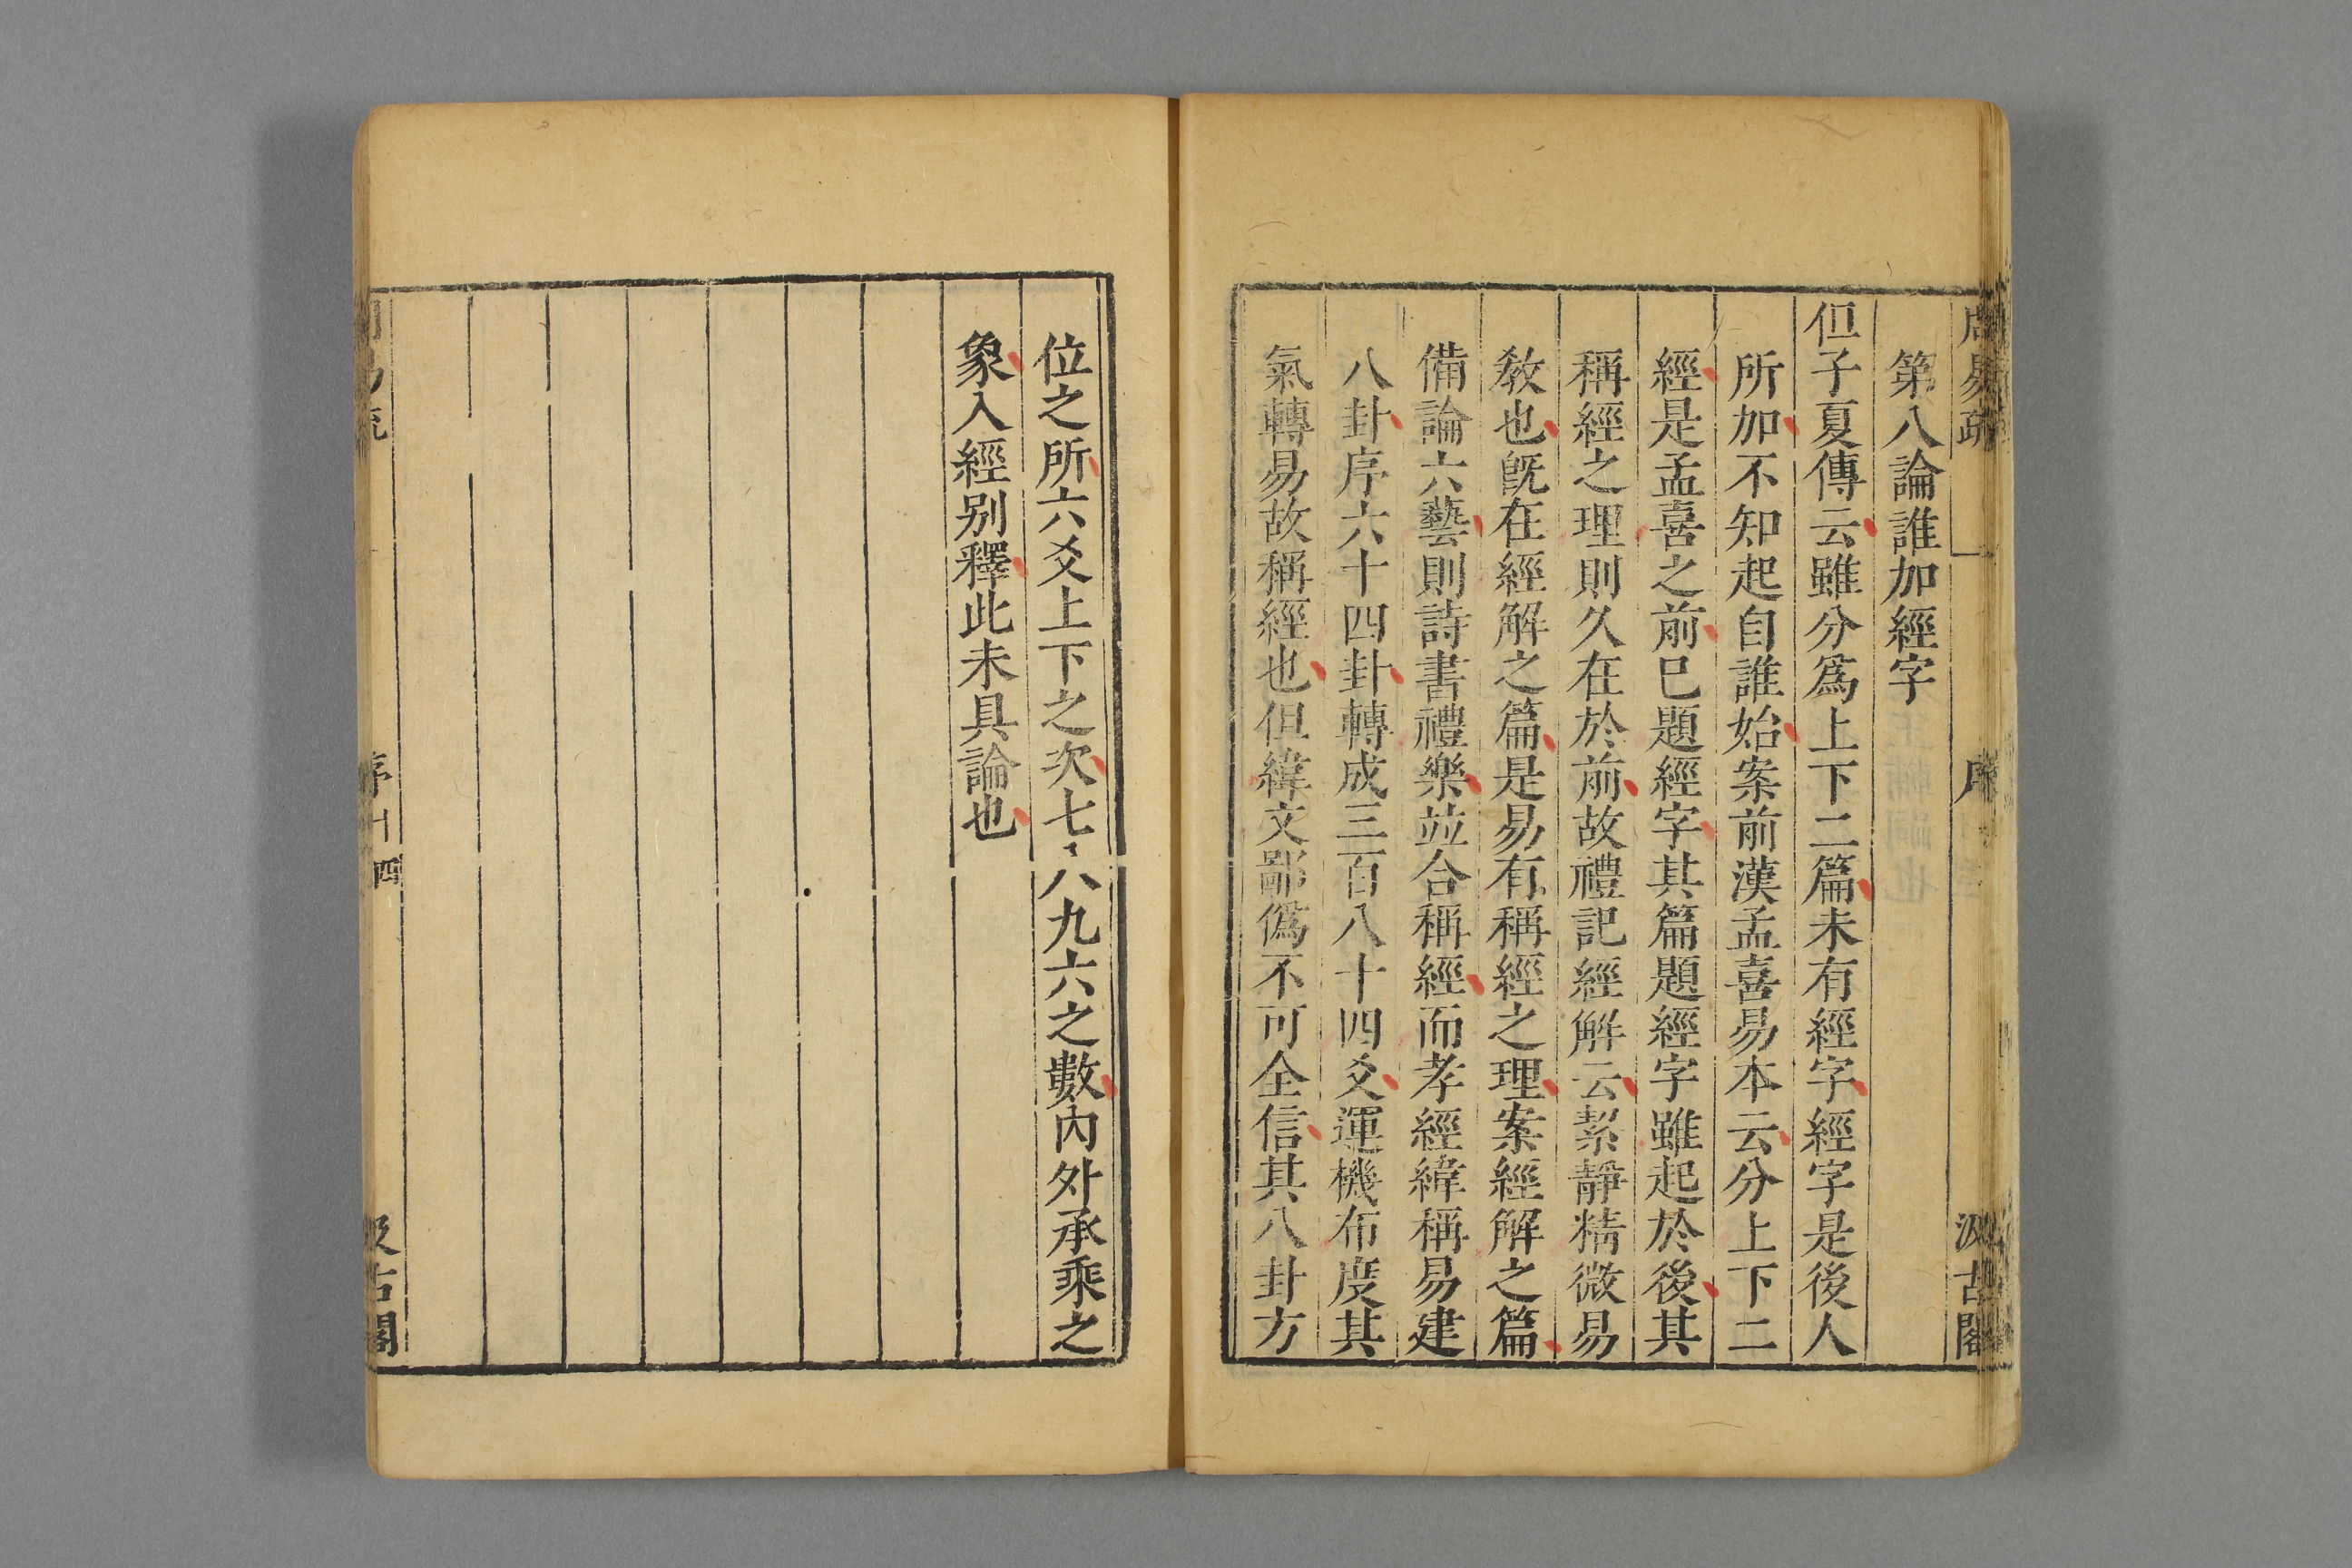 周易疏 序 汲古閣
第八論誰加經字
但子夏傳云雖分爲上下二篇未有經字經字是後人
所加不知起自誰始案前漢孟喜易本云分上下二
經是孟喜之前巳題經字其篇題經字雖起於後其
稱經之理則久在於前故禮記經解云絜靜精微易
敎也旣在經解之篇是易有稱經之理案經解之篇
備論六藝則詩書禮樂並合稱經而孝經緯稱易建
八卦序六十四卦轉成三百八十四爻運機布度其
氣轉易故稱經也但緯文鄙僞不可全信其八卦方
位之所六爻上下之次七八九六之數內外承乘之
象入經别釋此未具論也
易疏 序 十四 汲古閣